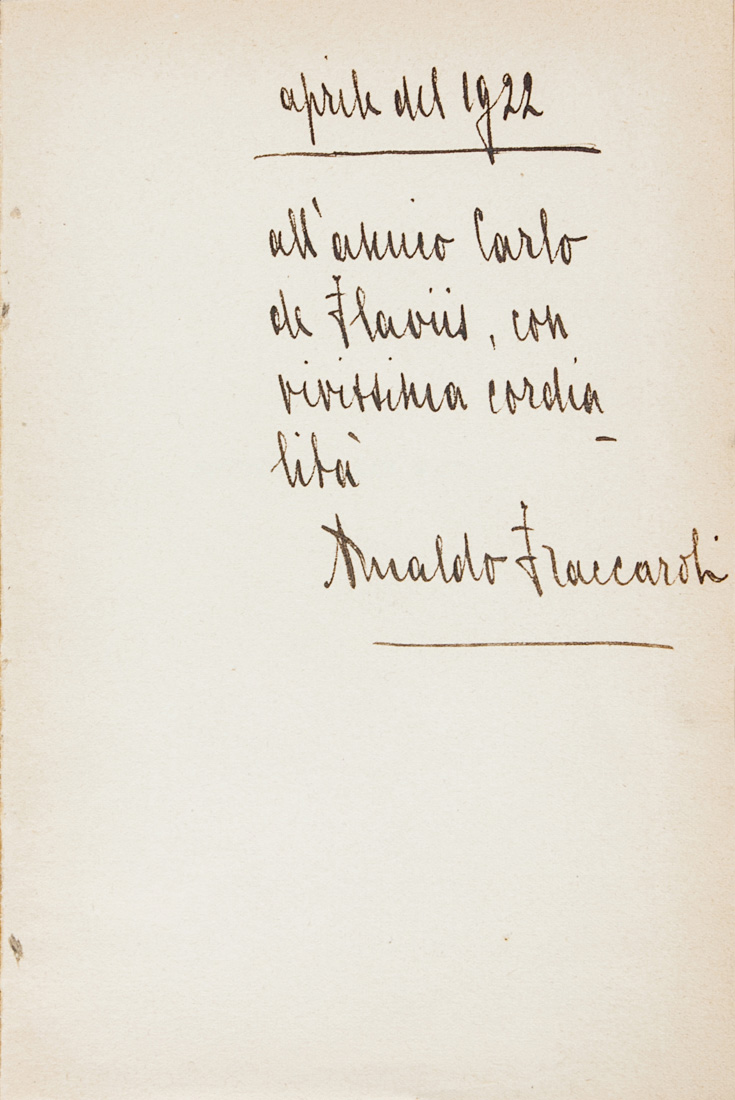 aprile del 1922
all'amico Carlo
de Flaviis, con
vivissima cordia_
lità
Arnaldo Fraccaroli